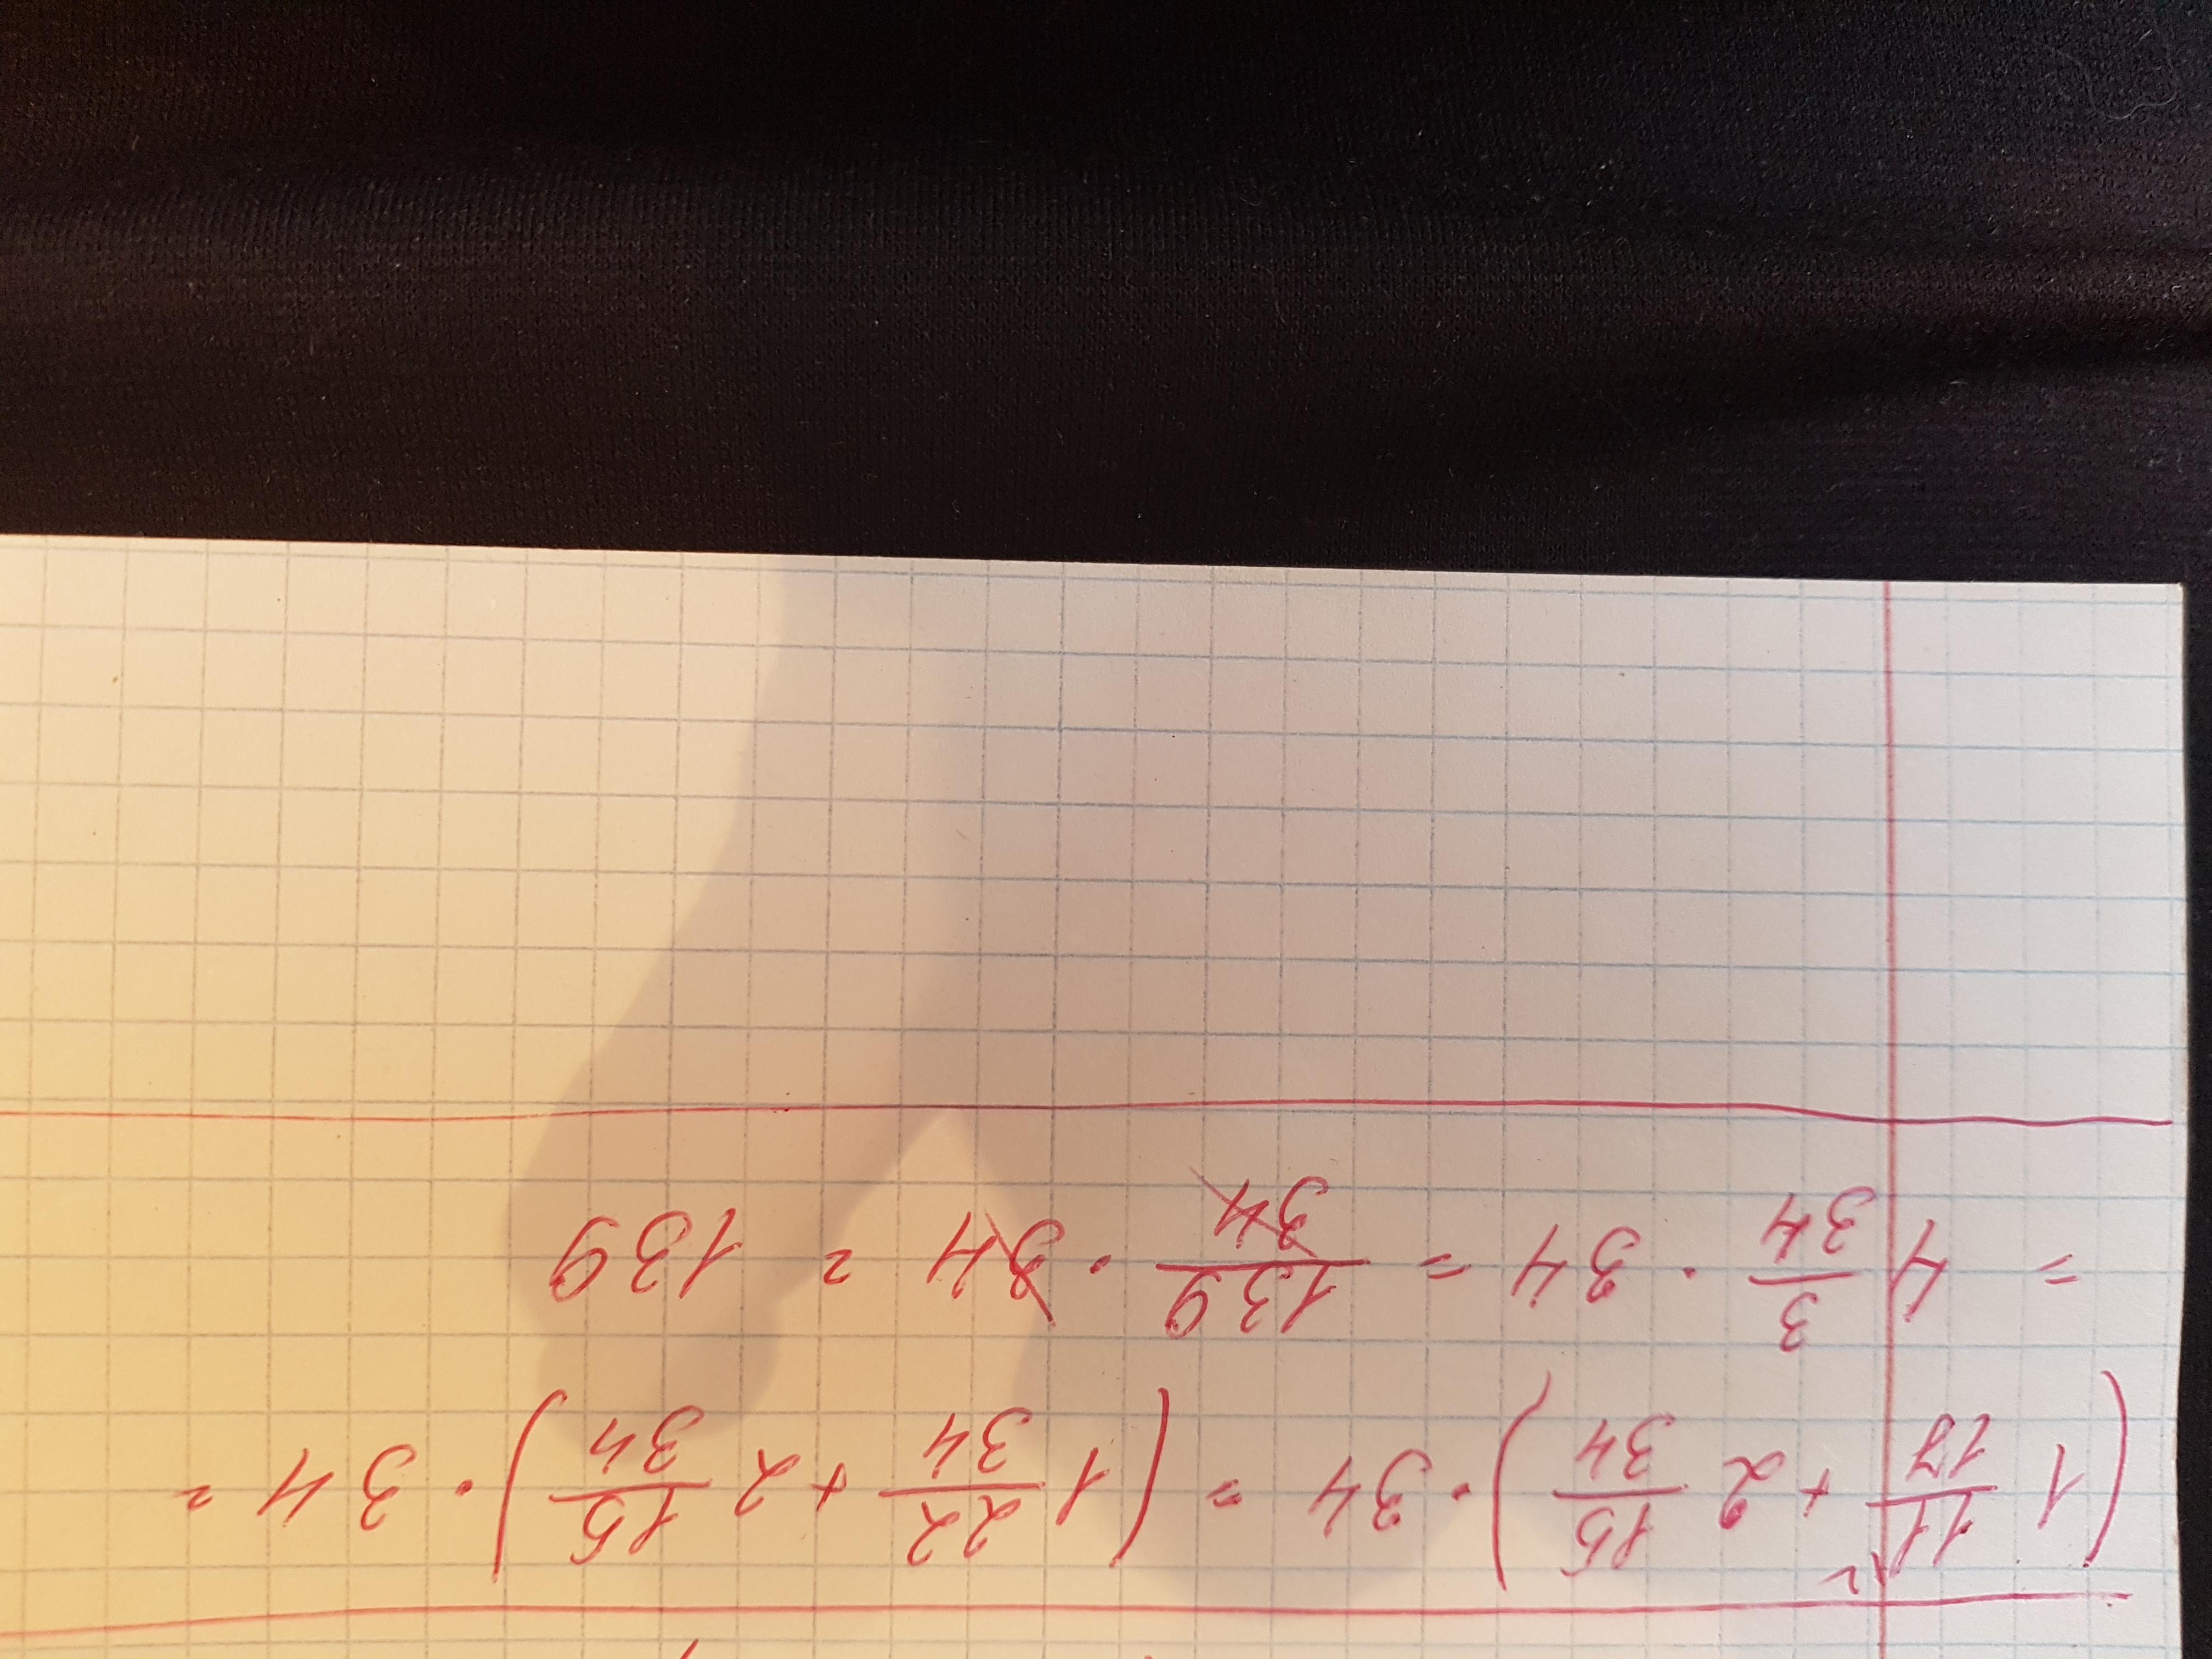 (1 11/17 + 2 15/34) · 34 = (1 22/34 + 2 15/34) · 34 =
= 4 3/34 · 34 = 139/34 · 34 = 139